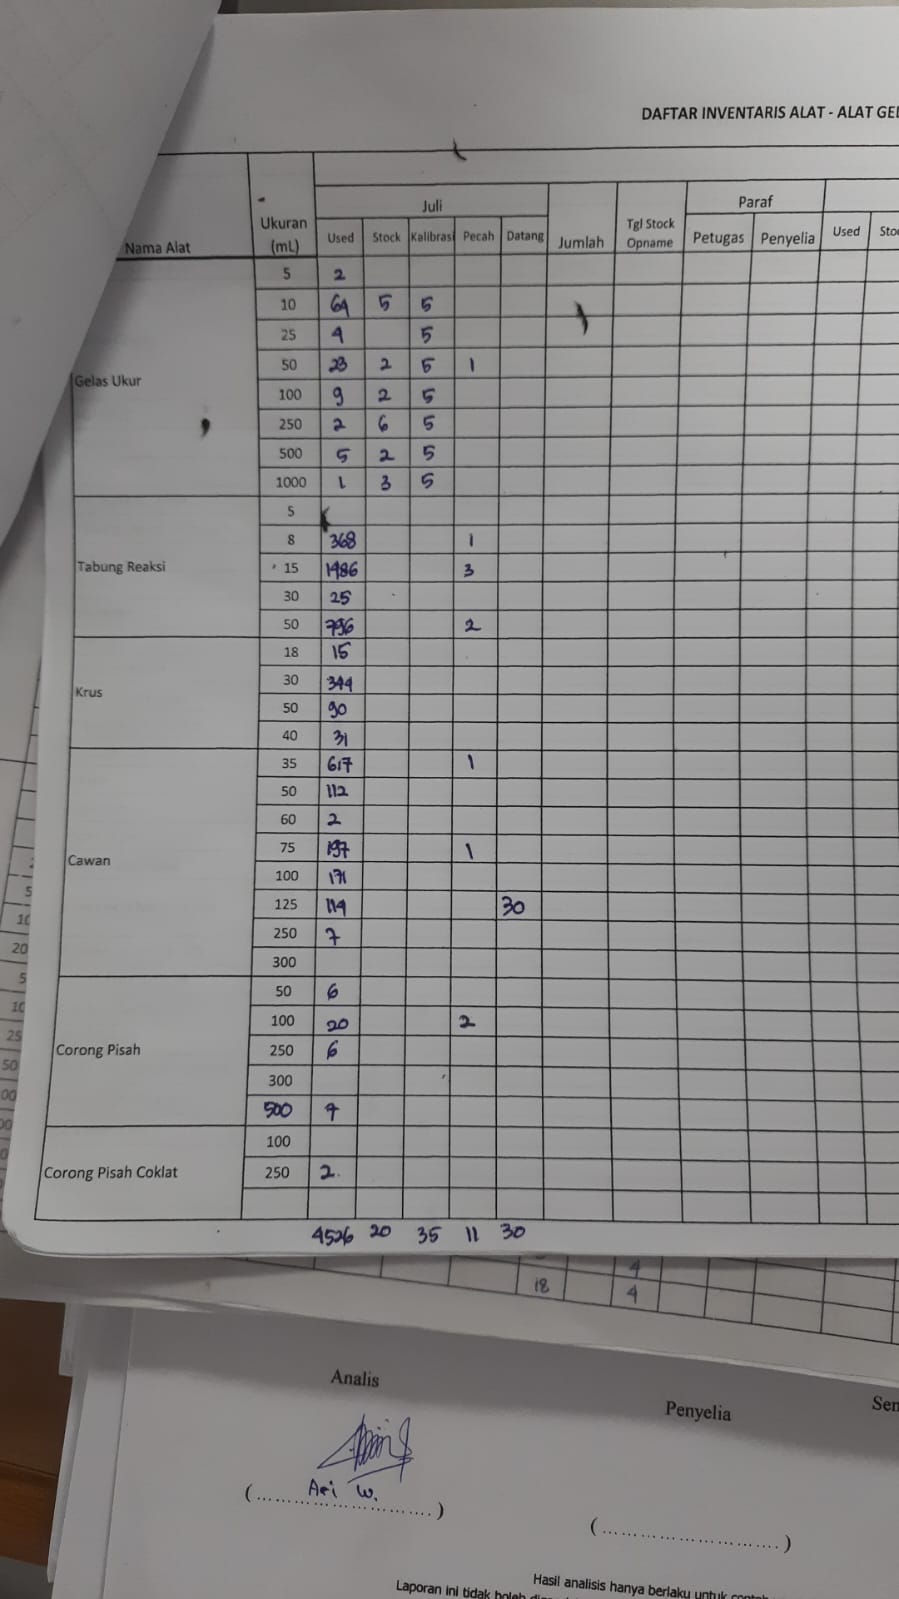 DAFTAR INVENTARIS ALAT - ALAT GEL
Nama Alat Ukuran (mL) Juli Jumlah Tgl Stock Opname Paraf
Used Stock Kalibrasi Pecah Datang Petugas Penyelia Used Stoc
Gelas Ukur
5 2
10 64 5 5
25 4 5
50 23 2 5 1
100 9 2 5
250 2 6 5
500 5 2 5
1000 1 3 5
Tabung Reaksi
5
8 368 1
15 1486 3
30 25
50 796 2
Krus
18 15
30 344
50 90
40 31
Cawan
35 617 1
50 112
60 2
75 197 1
100 171
125 114 30
250 7
300
Corong Pisah
50 6
100 20 2
250 6
300
500
Corong Pisah Coklat
100
250 2
4526 20 35 11 30
18 4
4
Analis Penyelia Sen
Ari W.
(..............................) (..............................)
Hasil analisis hanya berlaku untuk
Laporan ini tidak boleh